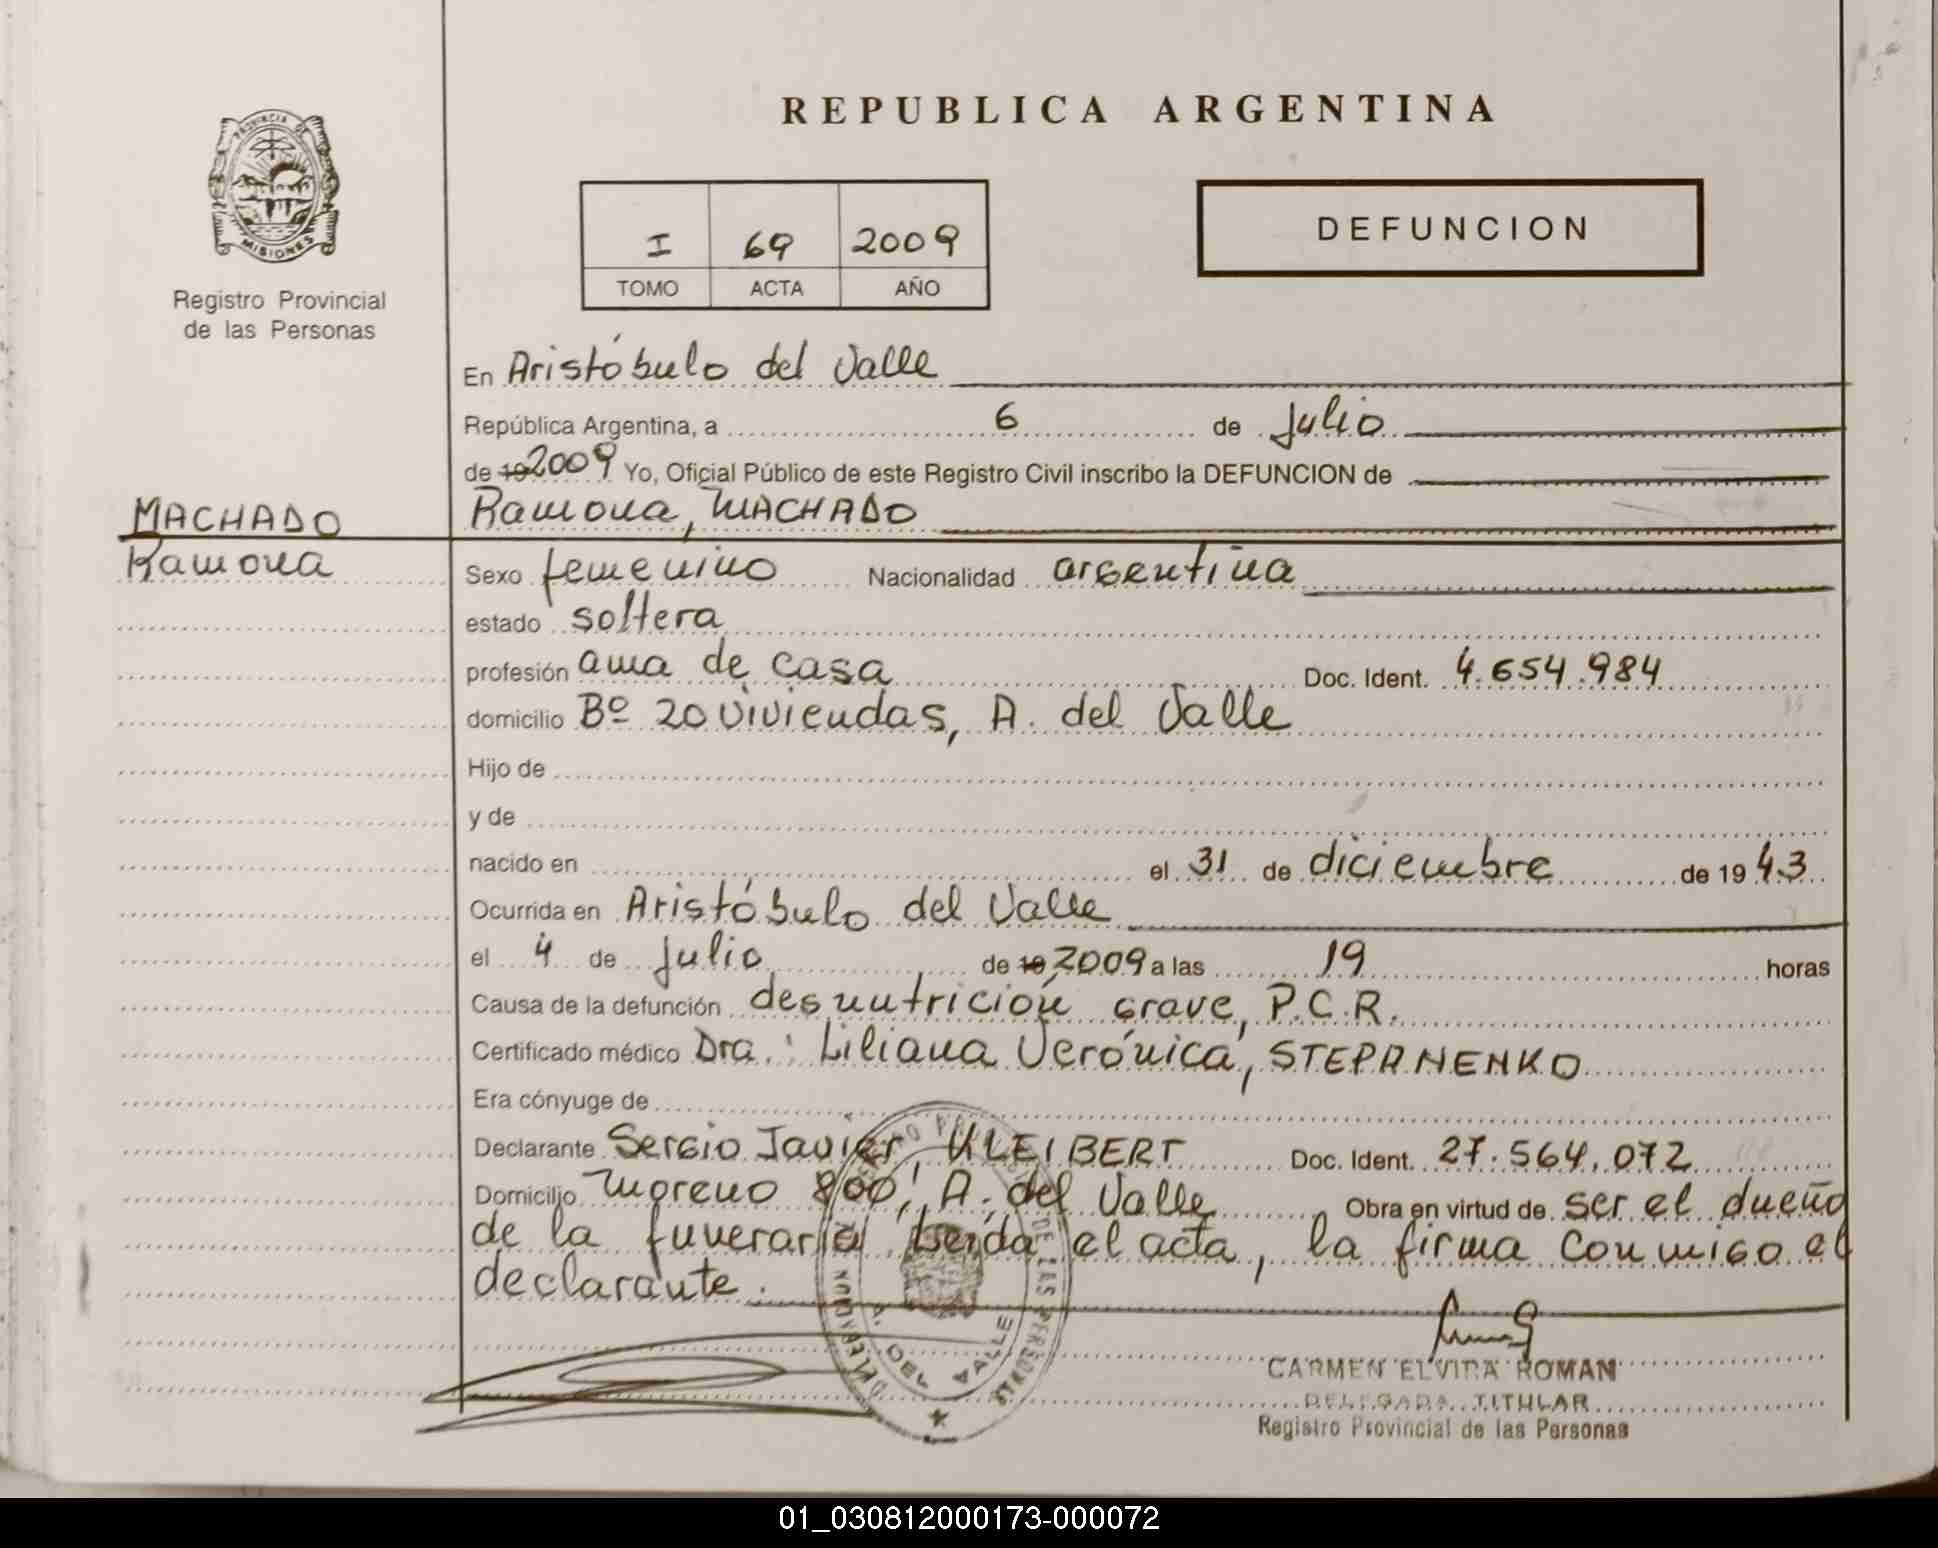 REPUBLICA ARGENTINA
PROVINCIA DE
MISIONES
Registro Provincial
de las Personas
I 69 2009
TOMO ACTA AÑO
DEFUNCION
En Aristóbulo del Valle
República Argentina, a 6 de Julio
de 19 2009 Yo, Oficial Público de este Registro Civil inscribo la DEFUNCION de
MACHADO
Ramona
Ramona, MACHADO
Sexo femenino Nacionalidad argentina
estado soltera
profesión ama de casa Doc. Ident. 4.654.984
domicilio Bº 20 viviendas, A. del Valle
Hijo de
y de
nacido en el 31 de diciembre de 19 43
Ocurrida en Aristóbulo del Valle
el 4 de Julio de 19 2009 a las 19 horas
Causa de la defunción desnutrición grave, P.C.R.
Certificado médico Dra.: Liliana Verónica, STEPANENKO
Era cónyuge de
Declarante Sergio Javier, KLEIBERT Doc. Ident. 27.564.072
Domicilio Moreno 800, A. del Valle Obra en virtud de ser el dueño
de la funeraria Leída el acta, la firma conmigo el
declarante.
DE LAS PERSONAS
A. DEL VALLE
CARMEN ELVIRA ROMAN
DELEGADA TITULAR
Registro Provincial de las Personas
01_030812000173-000072